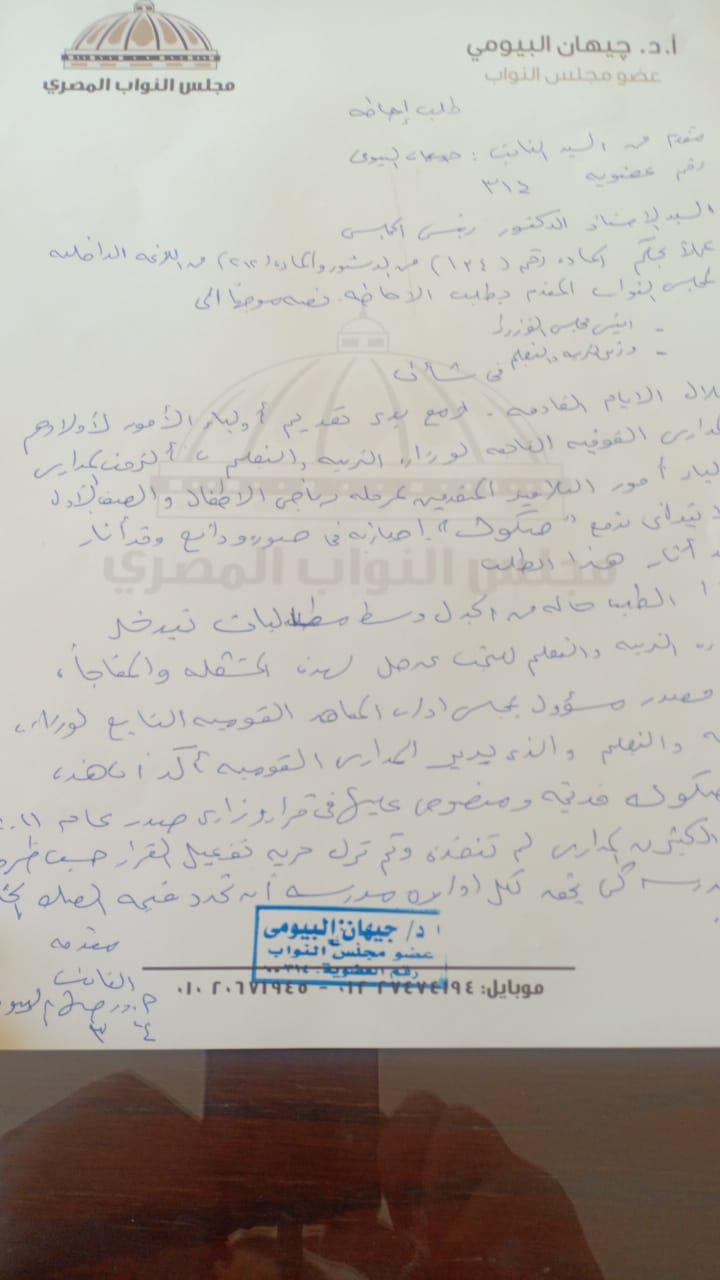 أ.د. جيهان البيومي
عضو مجلس النواب
مجلس النواب المصري
طلب إحاطة
مقدم من السيد النائب : جيهان البيومي
رقم عضوية ٣١٤
السيد الاستاذ الدكتور رئيس المجلس
عملاً بحكم المادة رقم (١٣٤) من الدستور والمادة (٢١٢) من اللائحة الداخلية
لمجلس النواب المقدم بطلب الاحاطة نصه موجهاً الى
- رئيس مجلس الوزراء
- وزير التربية والتعليم
في شأن
خلال الايام القادمة . ومع بدء تقديم أولياء الأمور لأولادهم
القومية التابعة لوزارة التربية والتعليم ، ألزمت المدارس
أمور التلاميذ المتقدمين لمرحلة رياض الاطفال والصف الأول
بدفع "صكوك" إجبارية في صورة ودائع وقد أثار
أثار هذا الطلب
الطلب حالة من الجدل وسط مطالبات بتدخل
التربية والتعليم للبحث عن حل لهذه المشكلة والمفاجأة ،
مصدر مسؤول بمجلس ادارة المعاهد القومية التابع لوزارة
والتعليم والذى يدير المدارس القومية أكد أن هذه
صكوك قديمة ومنصوص عليها فى قرار وزارى صدر عام
المدارس لم تنفذه وتم ترك حرية تفعيل القرار حسب
مدرسة كى يحق لكل ادارة مدرسة أن تحدد قيمة الصك
مقدمه
النائب
أ د/ جيهان البيومى
عضو مجلس النواب
رقم العضوية: ٣١٤
موبايل: ٠١٢ ٢٧٤٧٤١٩٤ - ٠١٠ ٢٠٦٧١٩٤٥